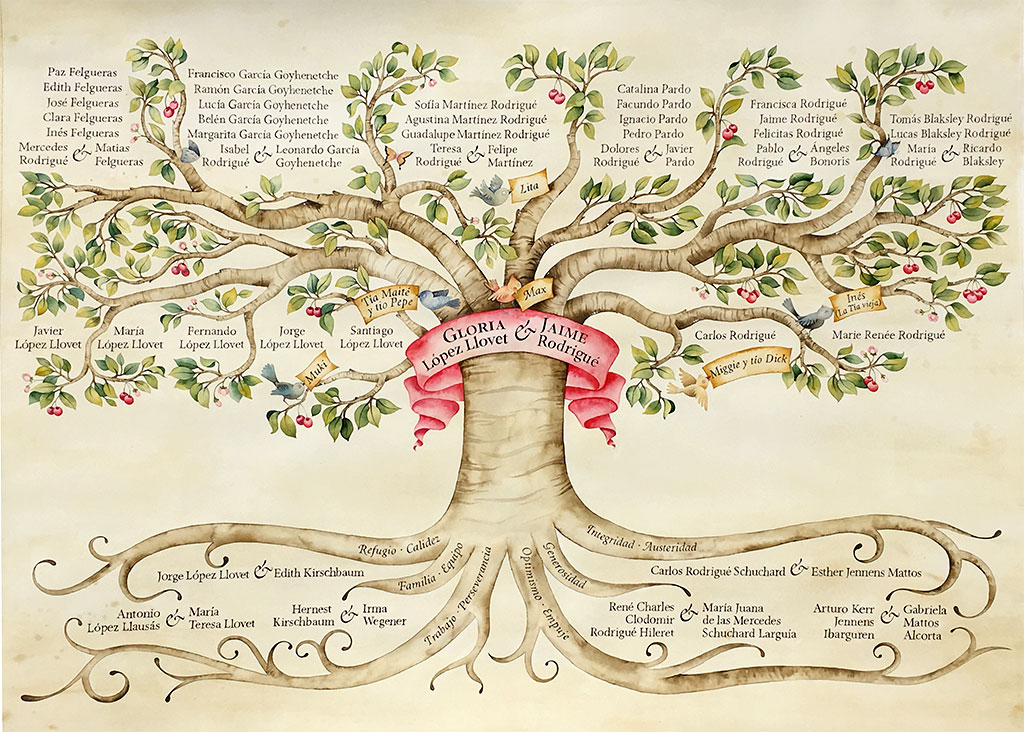 Paz Felgueras
Edith Felgueras
José Felgueras
Clara Felgueras
Inés Felgueras
Mercedes Rodrigué & Matias Felgueras
Francisco García Goyhenetche
Ramón García Goyhenetche
Lucía García Goyhenetche
Belén García Goyhenetche
Margarita García Goyhenetche
Isabel Rodrigué & Leonardo García Goyhenetche
Sofía Martínez Rodrigué
Agustina Martínez Rodrigué
Guadalupe Martínez Rodrigué
Teresa Rodrigué & Felipe Martínez
Catalina Pardo
Facundo Pardo
Ignacio Pardo
Pedro Pardo
Dolores Rodrigué & Javier Pardo
Francisca Rodrigué
Jaime Rodrigué
Felicitas Rodrigué
Pablo Rodrigué & Ángeles Bonoris
Tomás Blaksley Rodrigué
Lucas Blaksley Rodrigué
María Rodrigué & Ricardo Blaksley
Lita
Tía Maité
y tío Pepe
Max
Inés
(La Tía vieja)
Javier
López Llovet
María
López Llovet
Fernando
López Llovet
Jorge
López Llovet
Santiago
López Llovet
GLORIA López Llovet & JAIME Rodrigué
Carlos Rodrigué
Marie Renée Rodrigué
Muki
Miggie y tío Dick
Refugio · Calidez
Familia · Equipo
Trabajo · Perseverancia
Optimismo · Empuje
Generosidad
Integridad · Austeridad
Jorge López Llovet & Edith Kirschbaum
Carlos Rodrigué Schuchard & Esther Jennens Mattos
Antonio López Llausás & María Teresa Llovet
Hernest Kirschbaum & Irma Wegener
René Charles Clodomir Rodrigué Hileret & María Juana de las Mercedes Schuchard Larguía
Arturo Kerr Jennens Ibarguren & Gabriela Mattos Alcorta